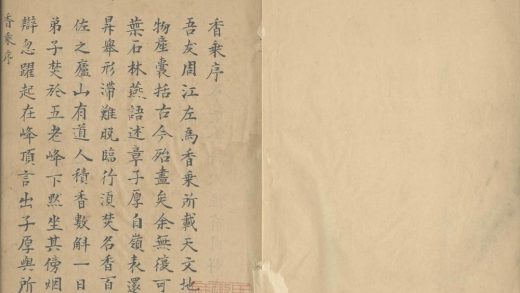 香乗序
吾友周江左為香乗所載天文地
物産囊括古今殆盡矣余無復可
葉石林燕語述章子厚自嶺表還
昇舉形滯難脱臨行須焚名香百
佐之廬山有道人積香數斛一日
弟子焚於五老峰下黙坐其傍烟
辯忽躍起在峰頂言出子厚與所
香乗序